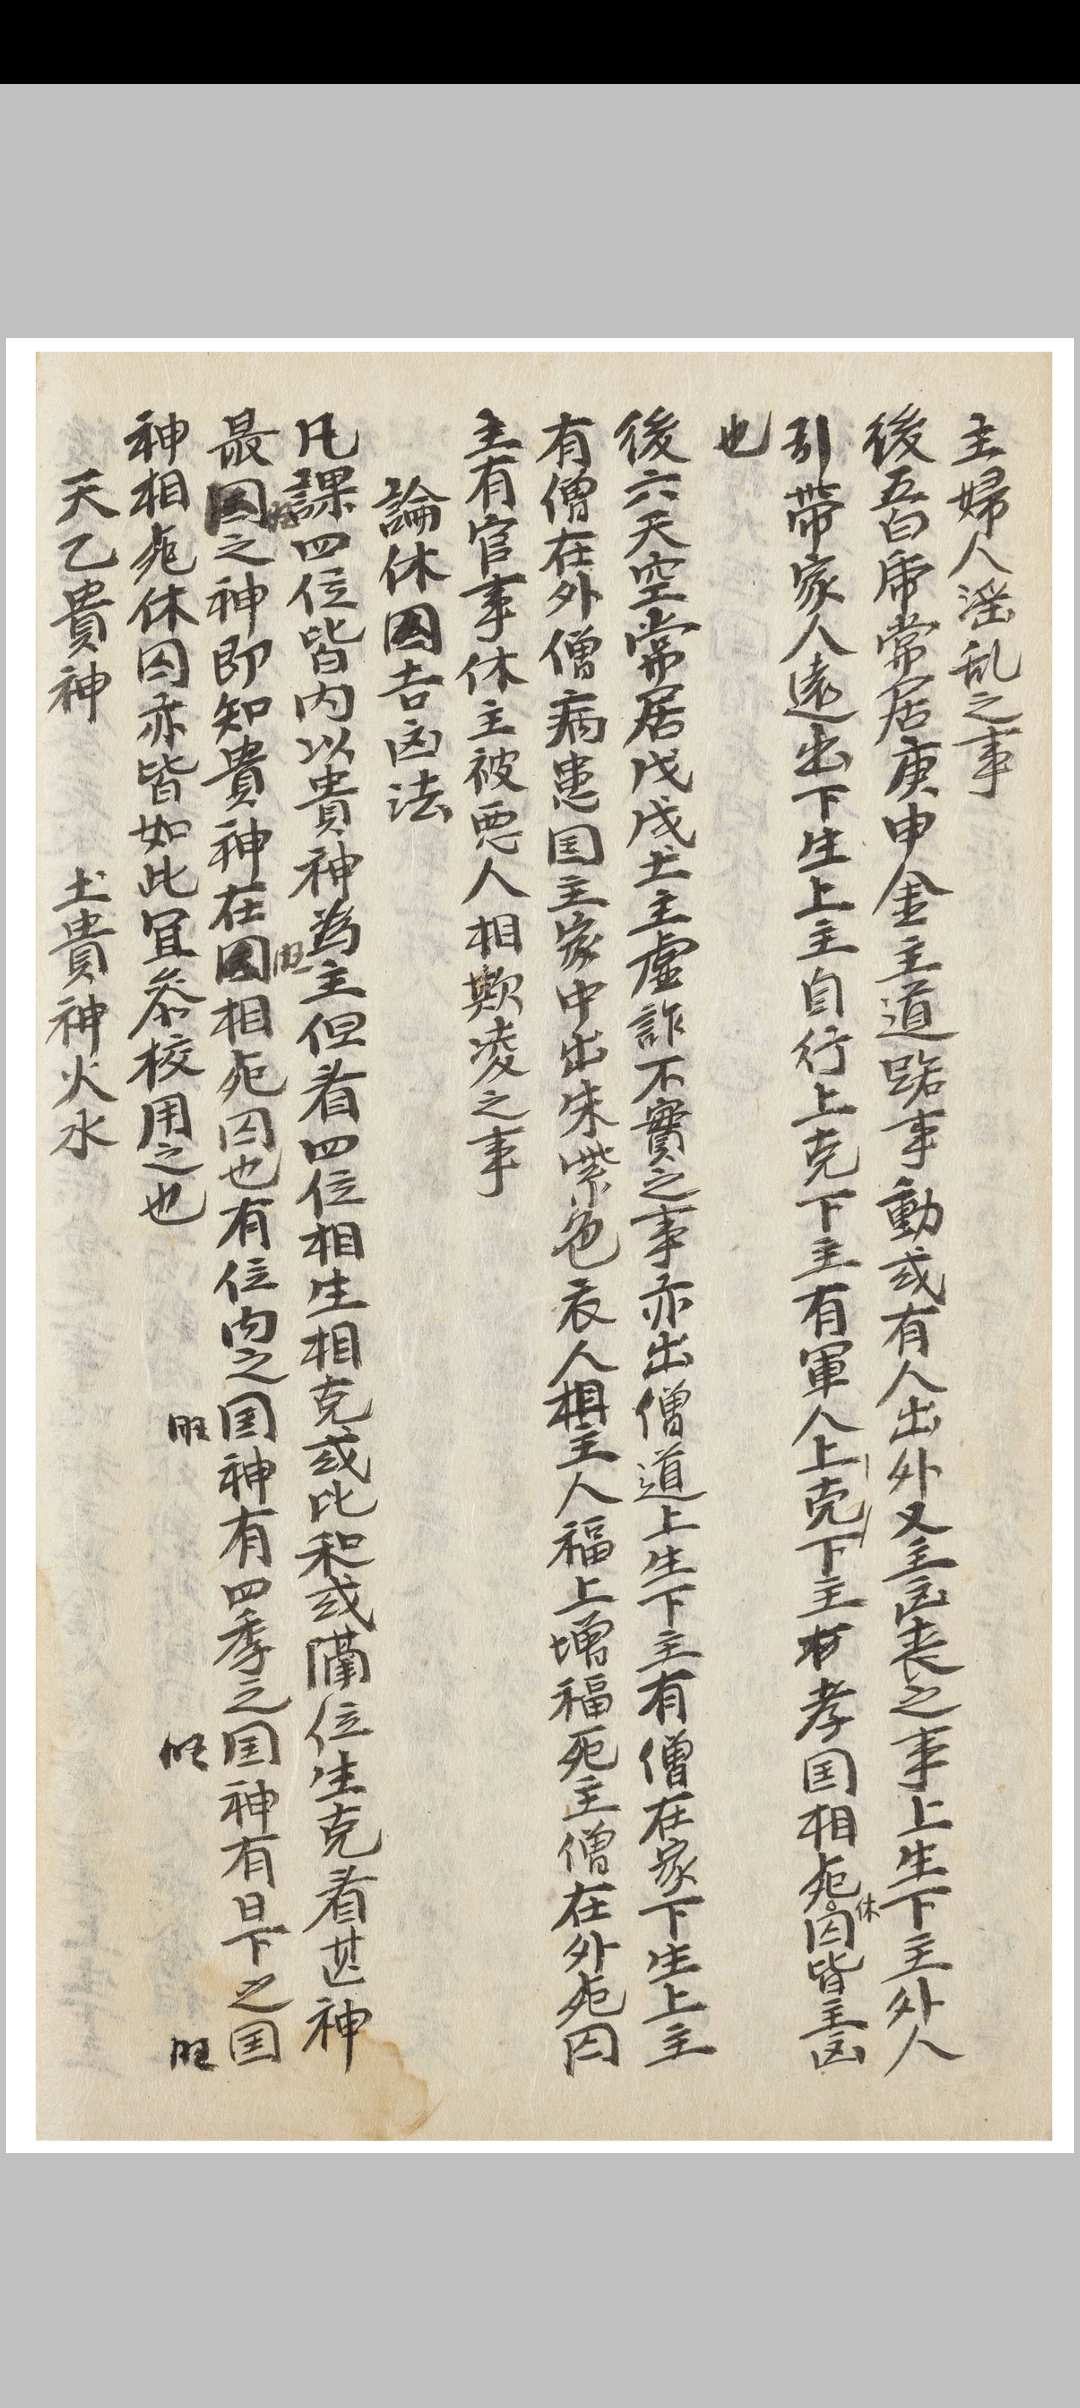 主婦人淫乱之事
後五白虎常居庚申金主道路事動或有人出外又主凶喪之事上生下主外人
引帶家人遠出下生上主自行上克下主有軍人上克下主有孝囯相死囚皆主凶
休
也
後六天空常居戊戌土主虛詐不實之事亦出僧道上生下主有僧在家下生上主
有僧在外僧病患囯主家中出朱紫色衣人相主人福上增福死主僧在外死囚
主有官事休主被惡人相欺凌之事
論休囚吉凶法
凡課四位皆內以貴神為主但看四位相生相克或比和或隔位生克看甚神
最囯之神即知貴神在囯相死囚也有位內之囯神有四季之囯神有日下之囯
旺
旺
旺
旺
旺
神相死休囚亦皆如此冝叅校用之也
天乙貴神 土貴神火水